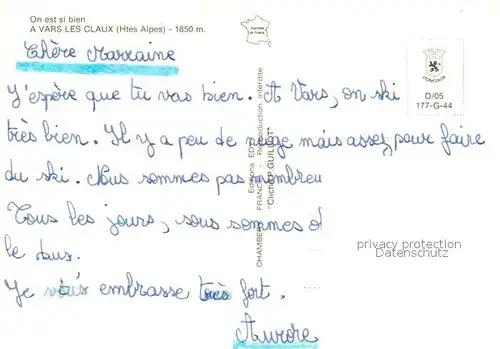 On est si bien
A VARS LES CLAUX (Htes Alpes) - 1850 m.
Chère Marraine
J'espère que tu vas bien. A Vars, on ski
très bien. Il y a peu de neige mais assez pour faire
du ski. Nous sommes pas nombreu
Tous les jours, sous sommes d
le bus.
Je vous embrasse très fort.
Aurore
D/05
177-G-44
Editions
CHAMBERY FRANCE - Reproduction interdite
"Cliché P. GUILLOT"
privacy protection
Datenschutz